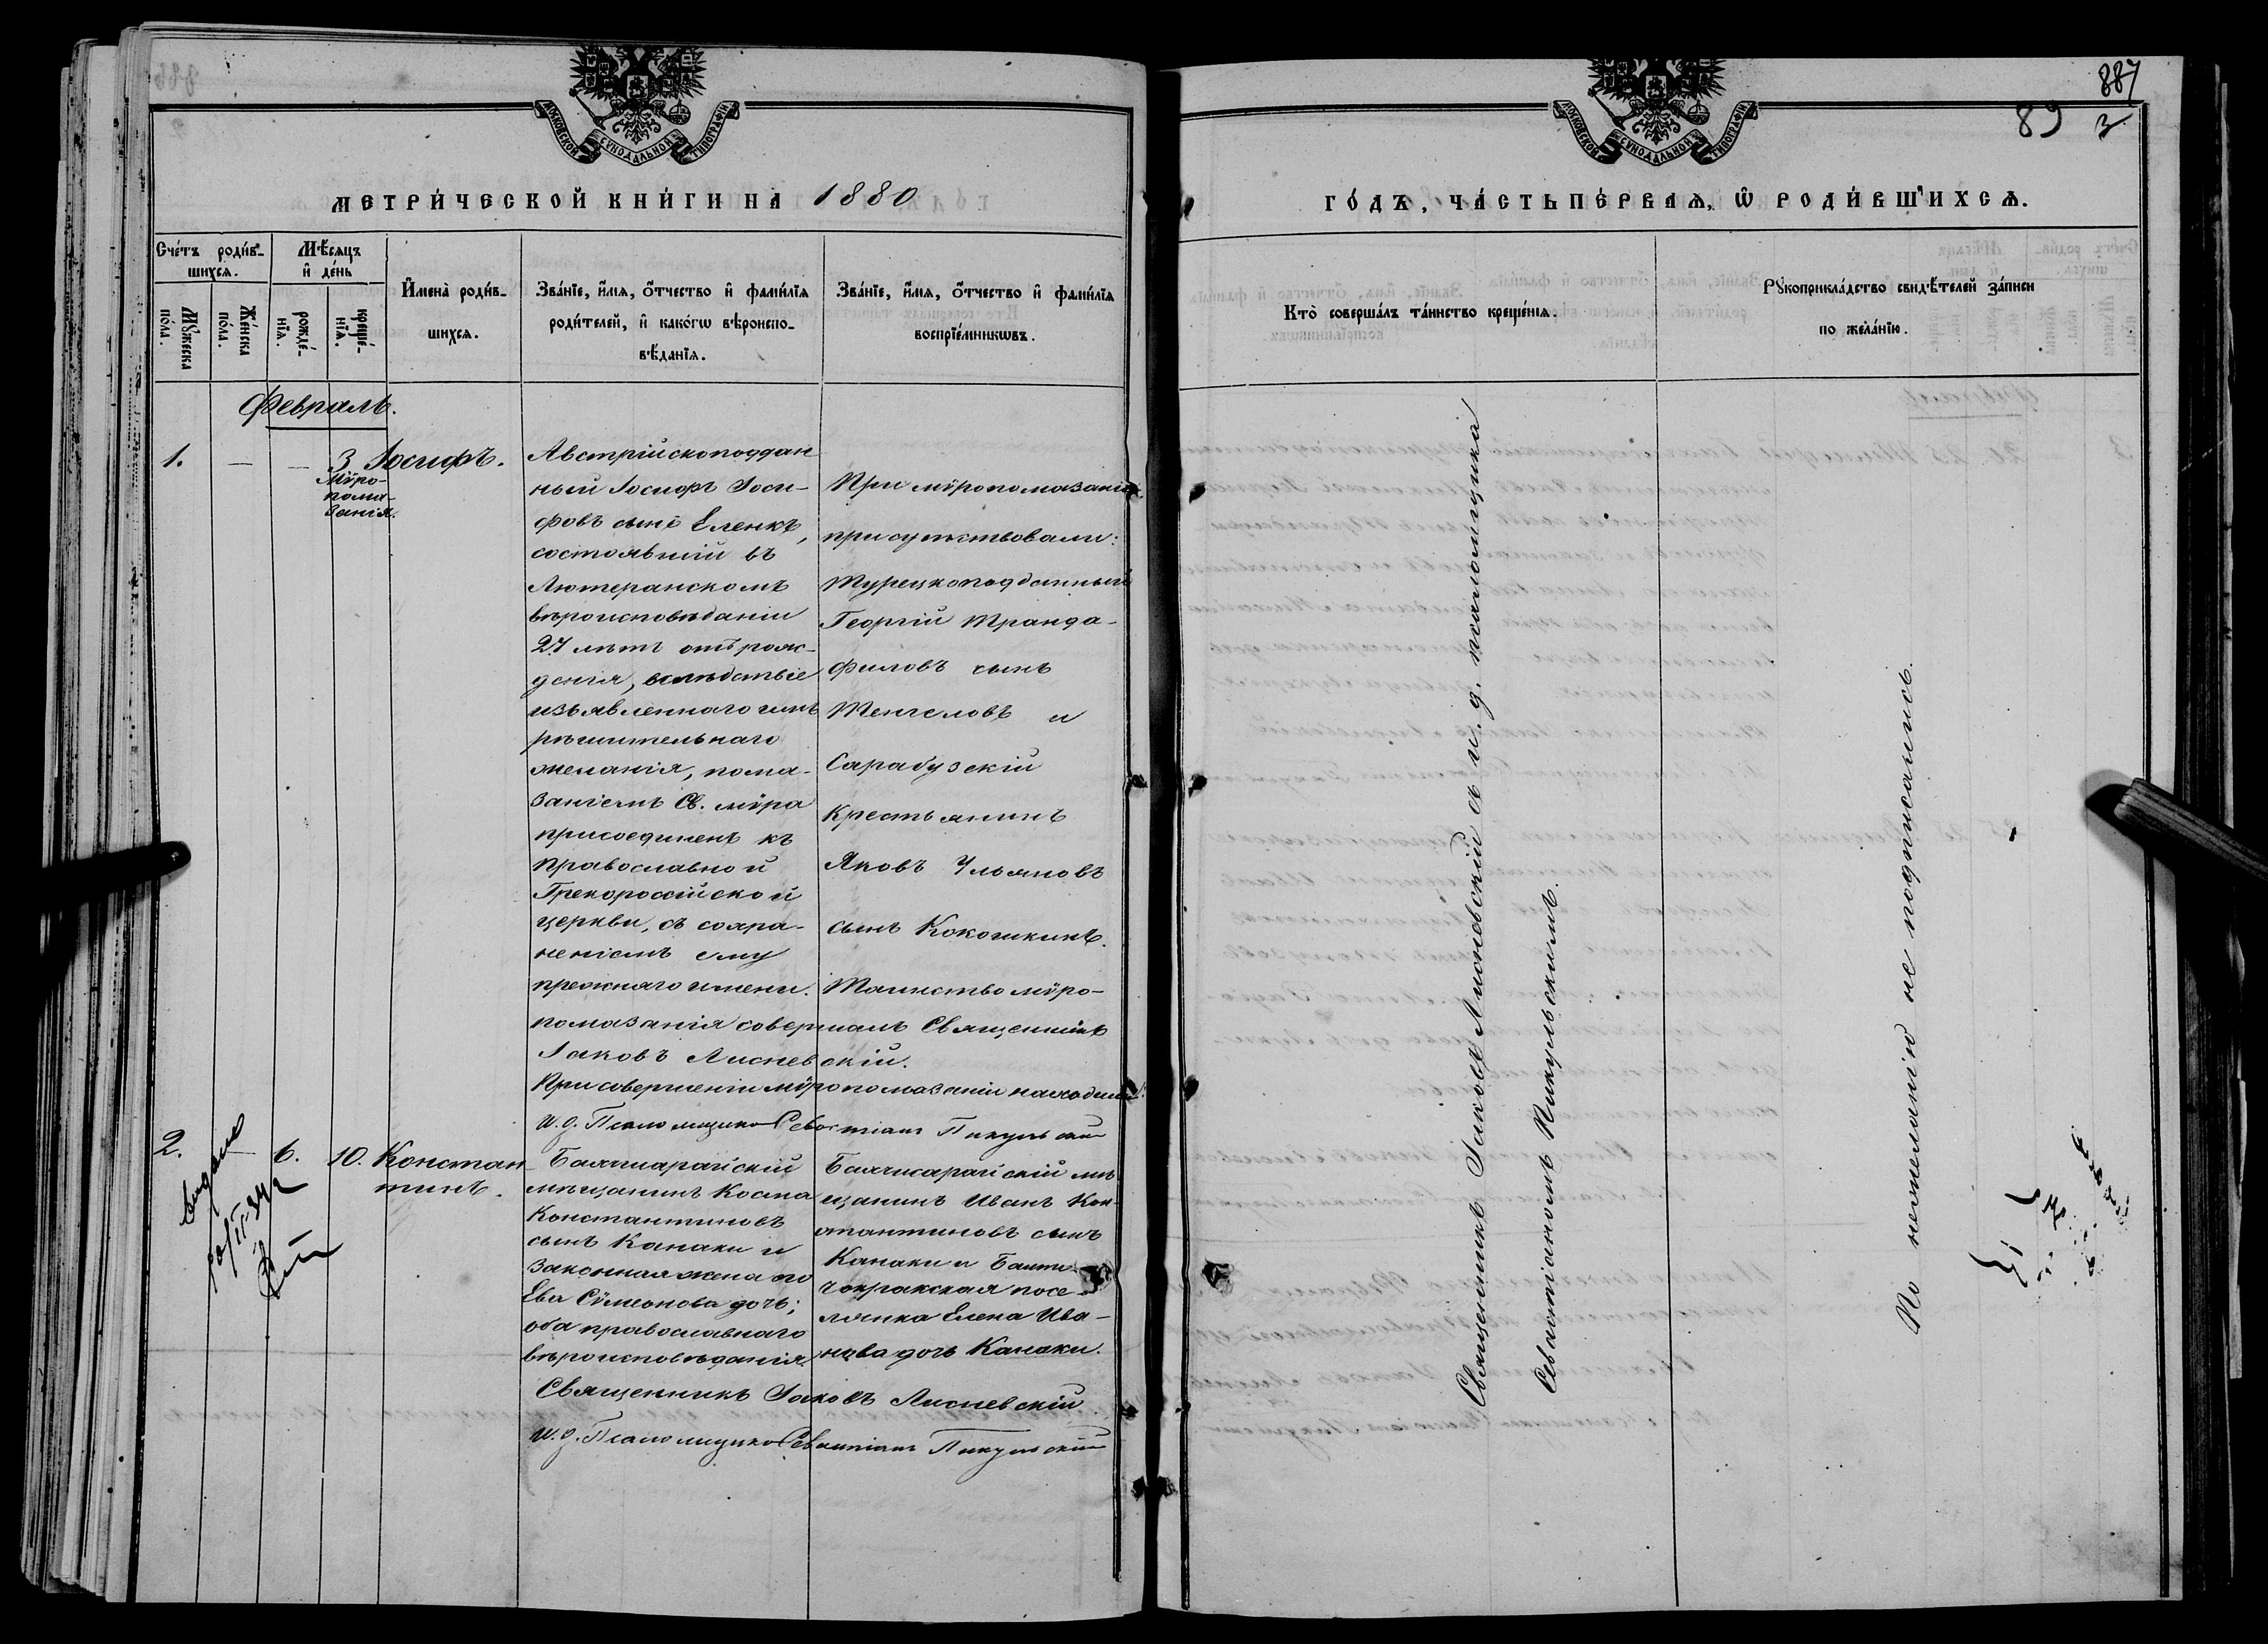 МОСКОВСКОЙ СѴНОДАЛЬНОЙ ТИПОГРАФІИ
МЕТРИ́ЧЕСКОЙ КНИ́ГИ НА 1880
Сче́тъ роди́в-
шихсѧ.
Мѣ́сяцъ
и҆ де́нь
Мꙋ́жеска
по́ла.
Же́нска
по́ла.
рожде́-
нїѧ.
креще́-
нїѧ.
И҆мена̀ роди́в-
шихсѧ.
Зва́нїе, и҆́мѧ, ѻ҆́тчество и҆ фами́лїѧ
роди́телей, и҆ како́гѡ вѣ́роиспо-
вѣ́данїѧ.
Зва́нїе, и҆́мѧ, ѻ҆́тчество и҆ фами́лїѧ
воспрїе́мникѡвъ.
Февраль.
1. — — 3 Іосифъ.
Мѵро-
пома-
занія.
Австрійскоподдан
ный Іосифъ Іоси-
фовъ сынъ Еленкъ,
состоявшій въ
Лютеранскомъ
вѣроисповѣданіи
27 лѣтъ отъ рож-
денія, вслѣдствіе
изъявленнаго имъ
рѣшительнаго
желанія, пома-
заніемъ Св. мѵра
присоединенъ къ
православной
Грекороссійской
церкви, съ сохра-
неніемъ ему
прежняго имени.
При мѵропомазаніи
присутствовали:
Турецкоподданный
Георгій Транда-
филовъ сынъ
Тенгеловъ и
Сарабузскій
крестьянинъ
Яковъ Ульяновъ
сынъ Кокошкинъ.
Таинство мѵро-
помазанія совершалъ Священникъ
Іаковъ Лисневскій.
При совершеніи мѵропомазаніи находился
И. д. Псаломщика Севастіанъ Пикульскій
2. 6. 10. Констан-
тинъ.
Выдано
Бахчисарайскій
мѣщанинъ Косма
Константиновъ
сынъ Канаки и
законная жена его
Ева Сѵмеонова дочь;
оба православнаго
вѣроисповѣданія.
Бахчисарайскій мѣ
щанинъ Иванъ Кон-
стантиновъ сынъ
Канаки и Башта
чокракская посе-
лянка Елена Ива-
нова дочь Канаки.
Священникъ Іаковъ Лисневскій
И. д. Псаломщика Севастіанъ Пикульскій
887
89 3
МОСКОВСКОЙ СѴНОДАЛЬНОЙ ТИПОГРАФІИ
ГО́ДЪ, ЧА́СТЬ ПЕ́РВАѦ, Ѡ҆ РОДИ́ВШИХСѦ.
Кто̀ соверша́лъ та́инство креще́нїѧ.
Рꙋкоприкла́дство свидѣ́телей за́писи
по жела́нїю.
Священникъ Іаковъ Лисневскій съ и. д. псаломщика
Севастіаномъ Пикульскимъ.
По нежеланію не подписались.